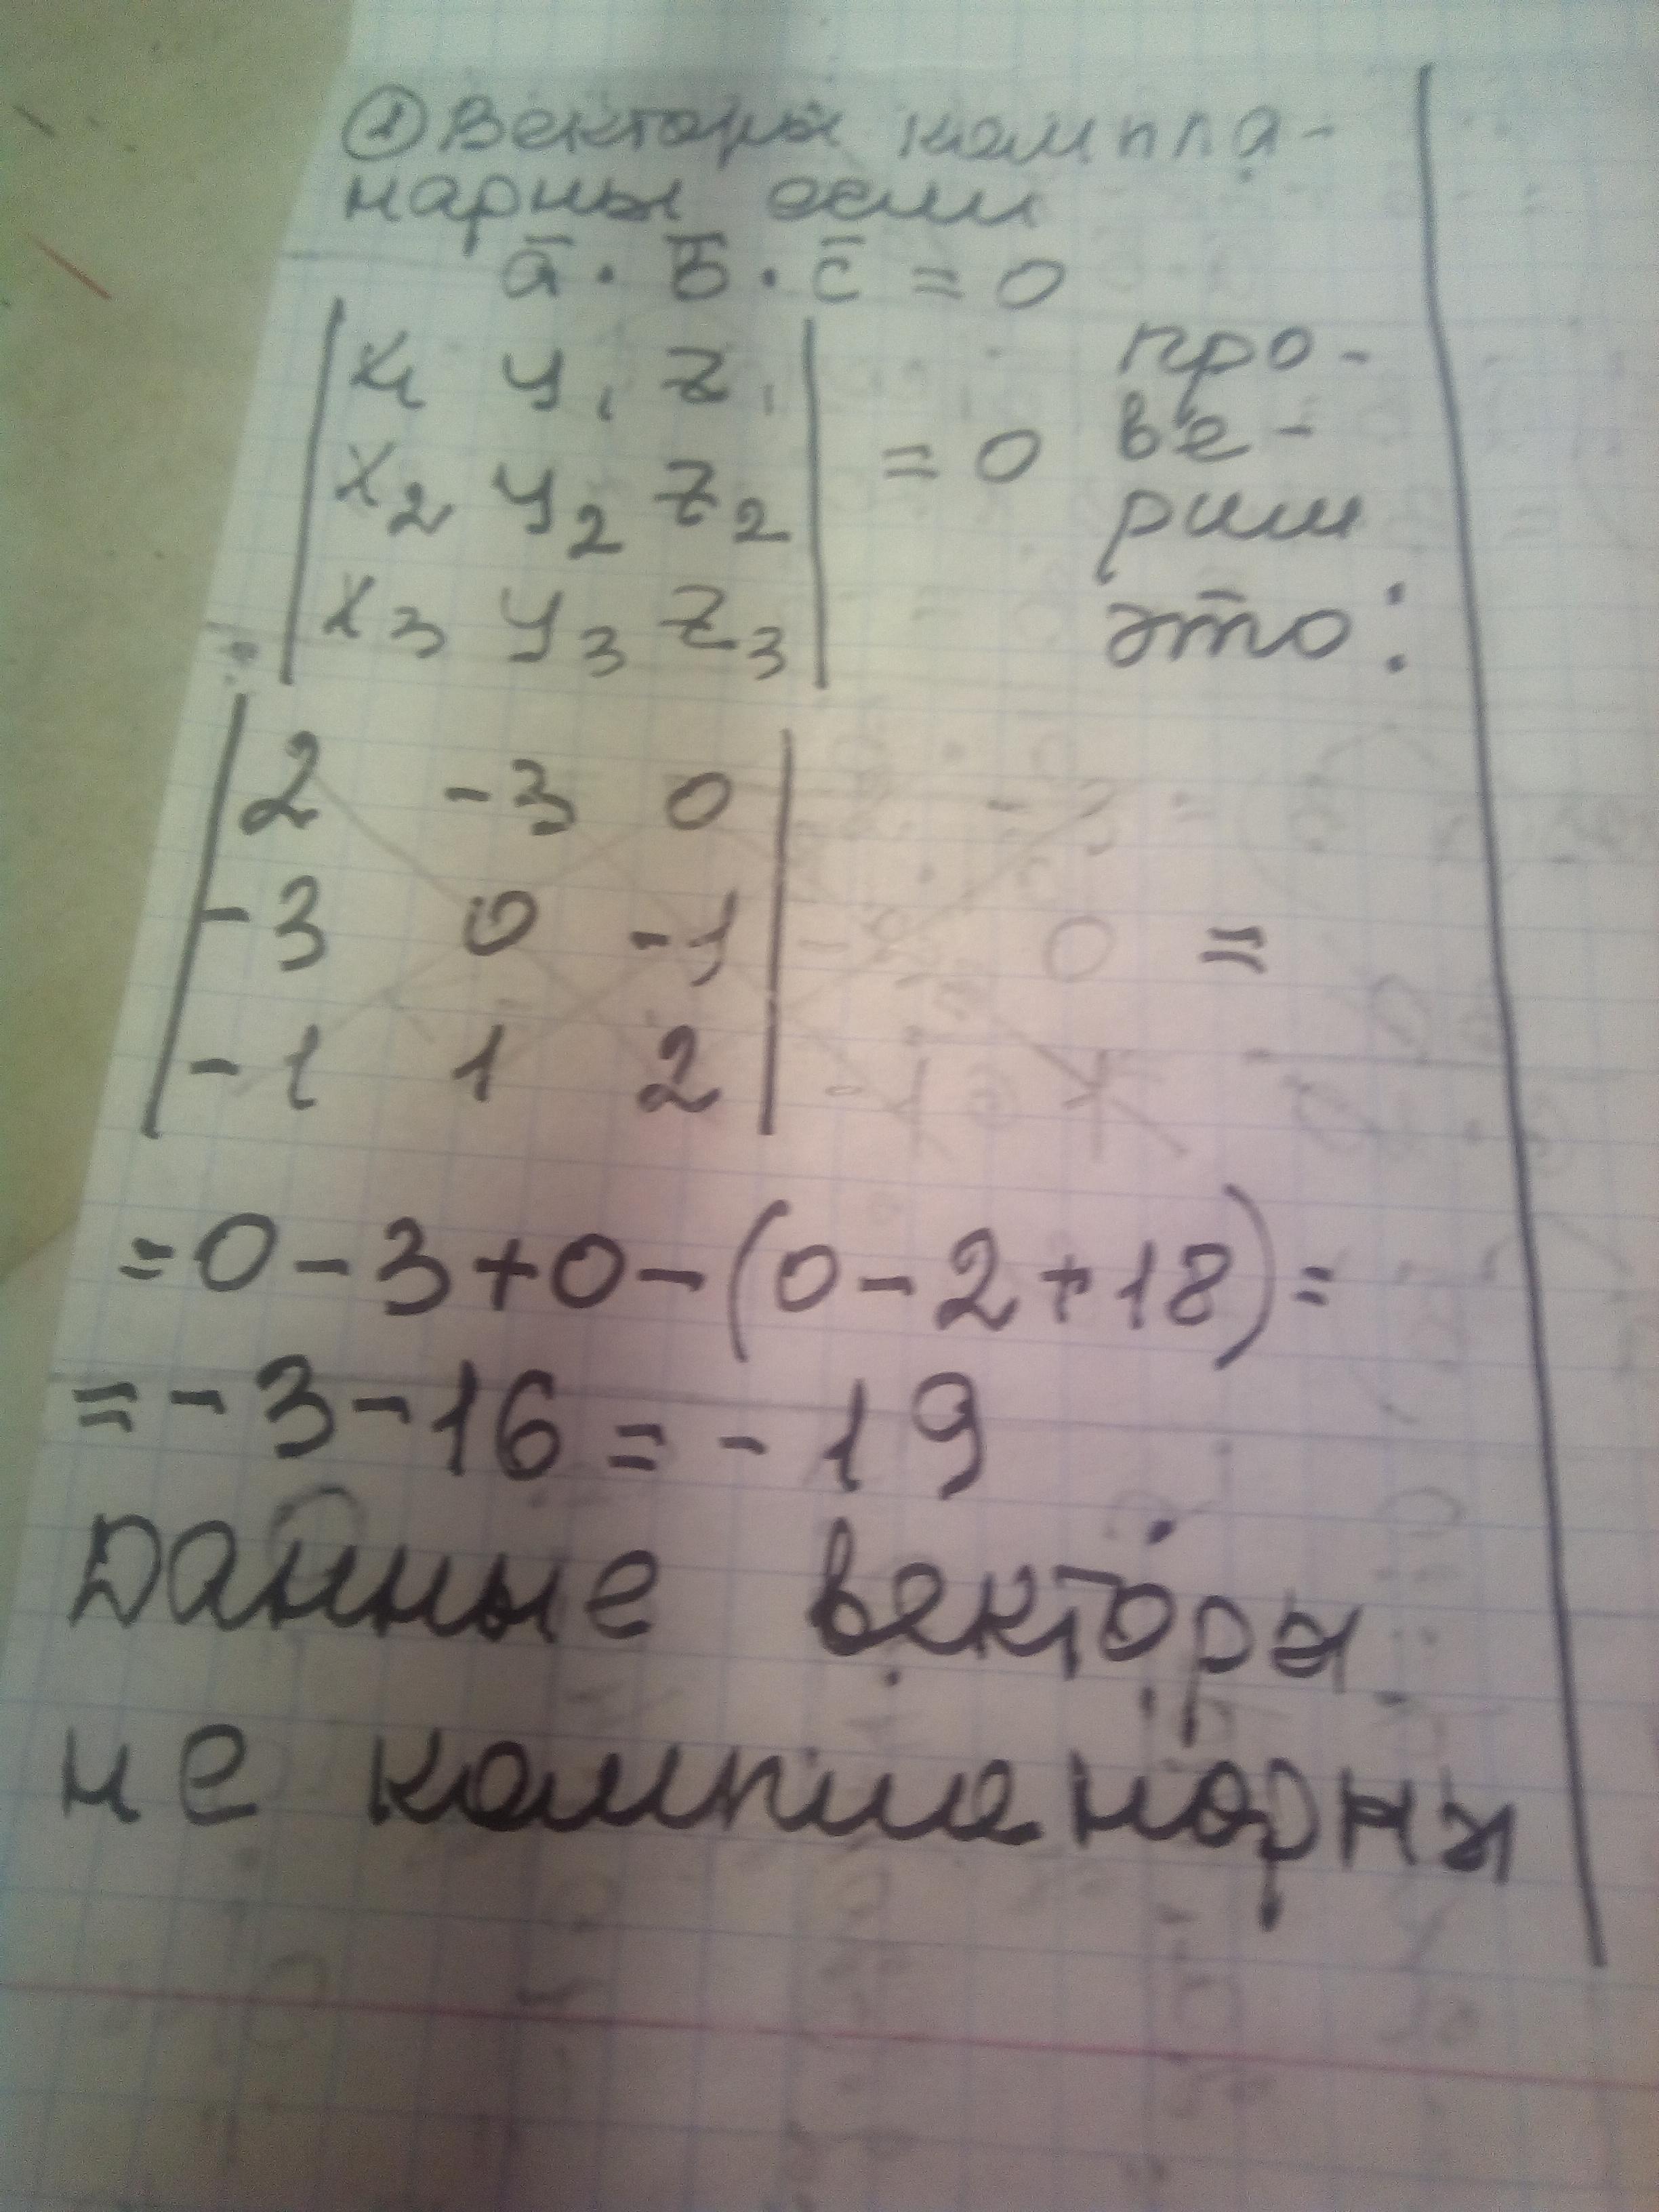 ① Векторы компла-
нарны если
a̅ · b̅ · c̅ = 0
x₁ y₁ z₁
x₂ y₂ z₂ = 0
x₃ y₃ z₃
про-
ве-
рим
это:
2 -3 0
-3 0 -1 =
-1 1 2
= 0 - 3 + 0 - (0 - 2 + 18) =
= - 3 - 16 = - 19
Данные векторы
не компланарны